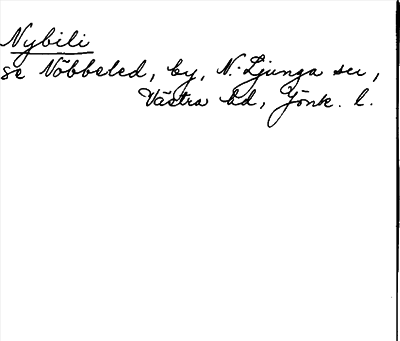 Nybili
se Nöbbeled, by, N. Ljunga sn,
Västra hd, Jönk. l.